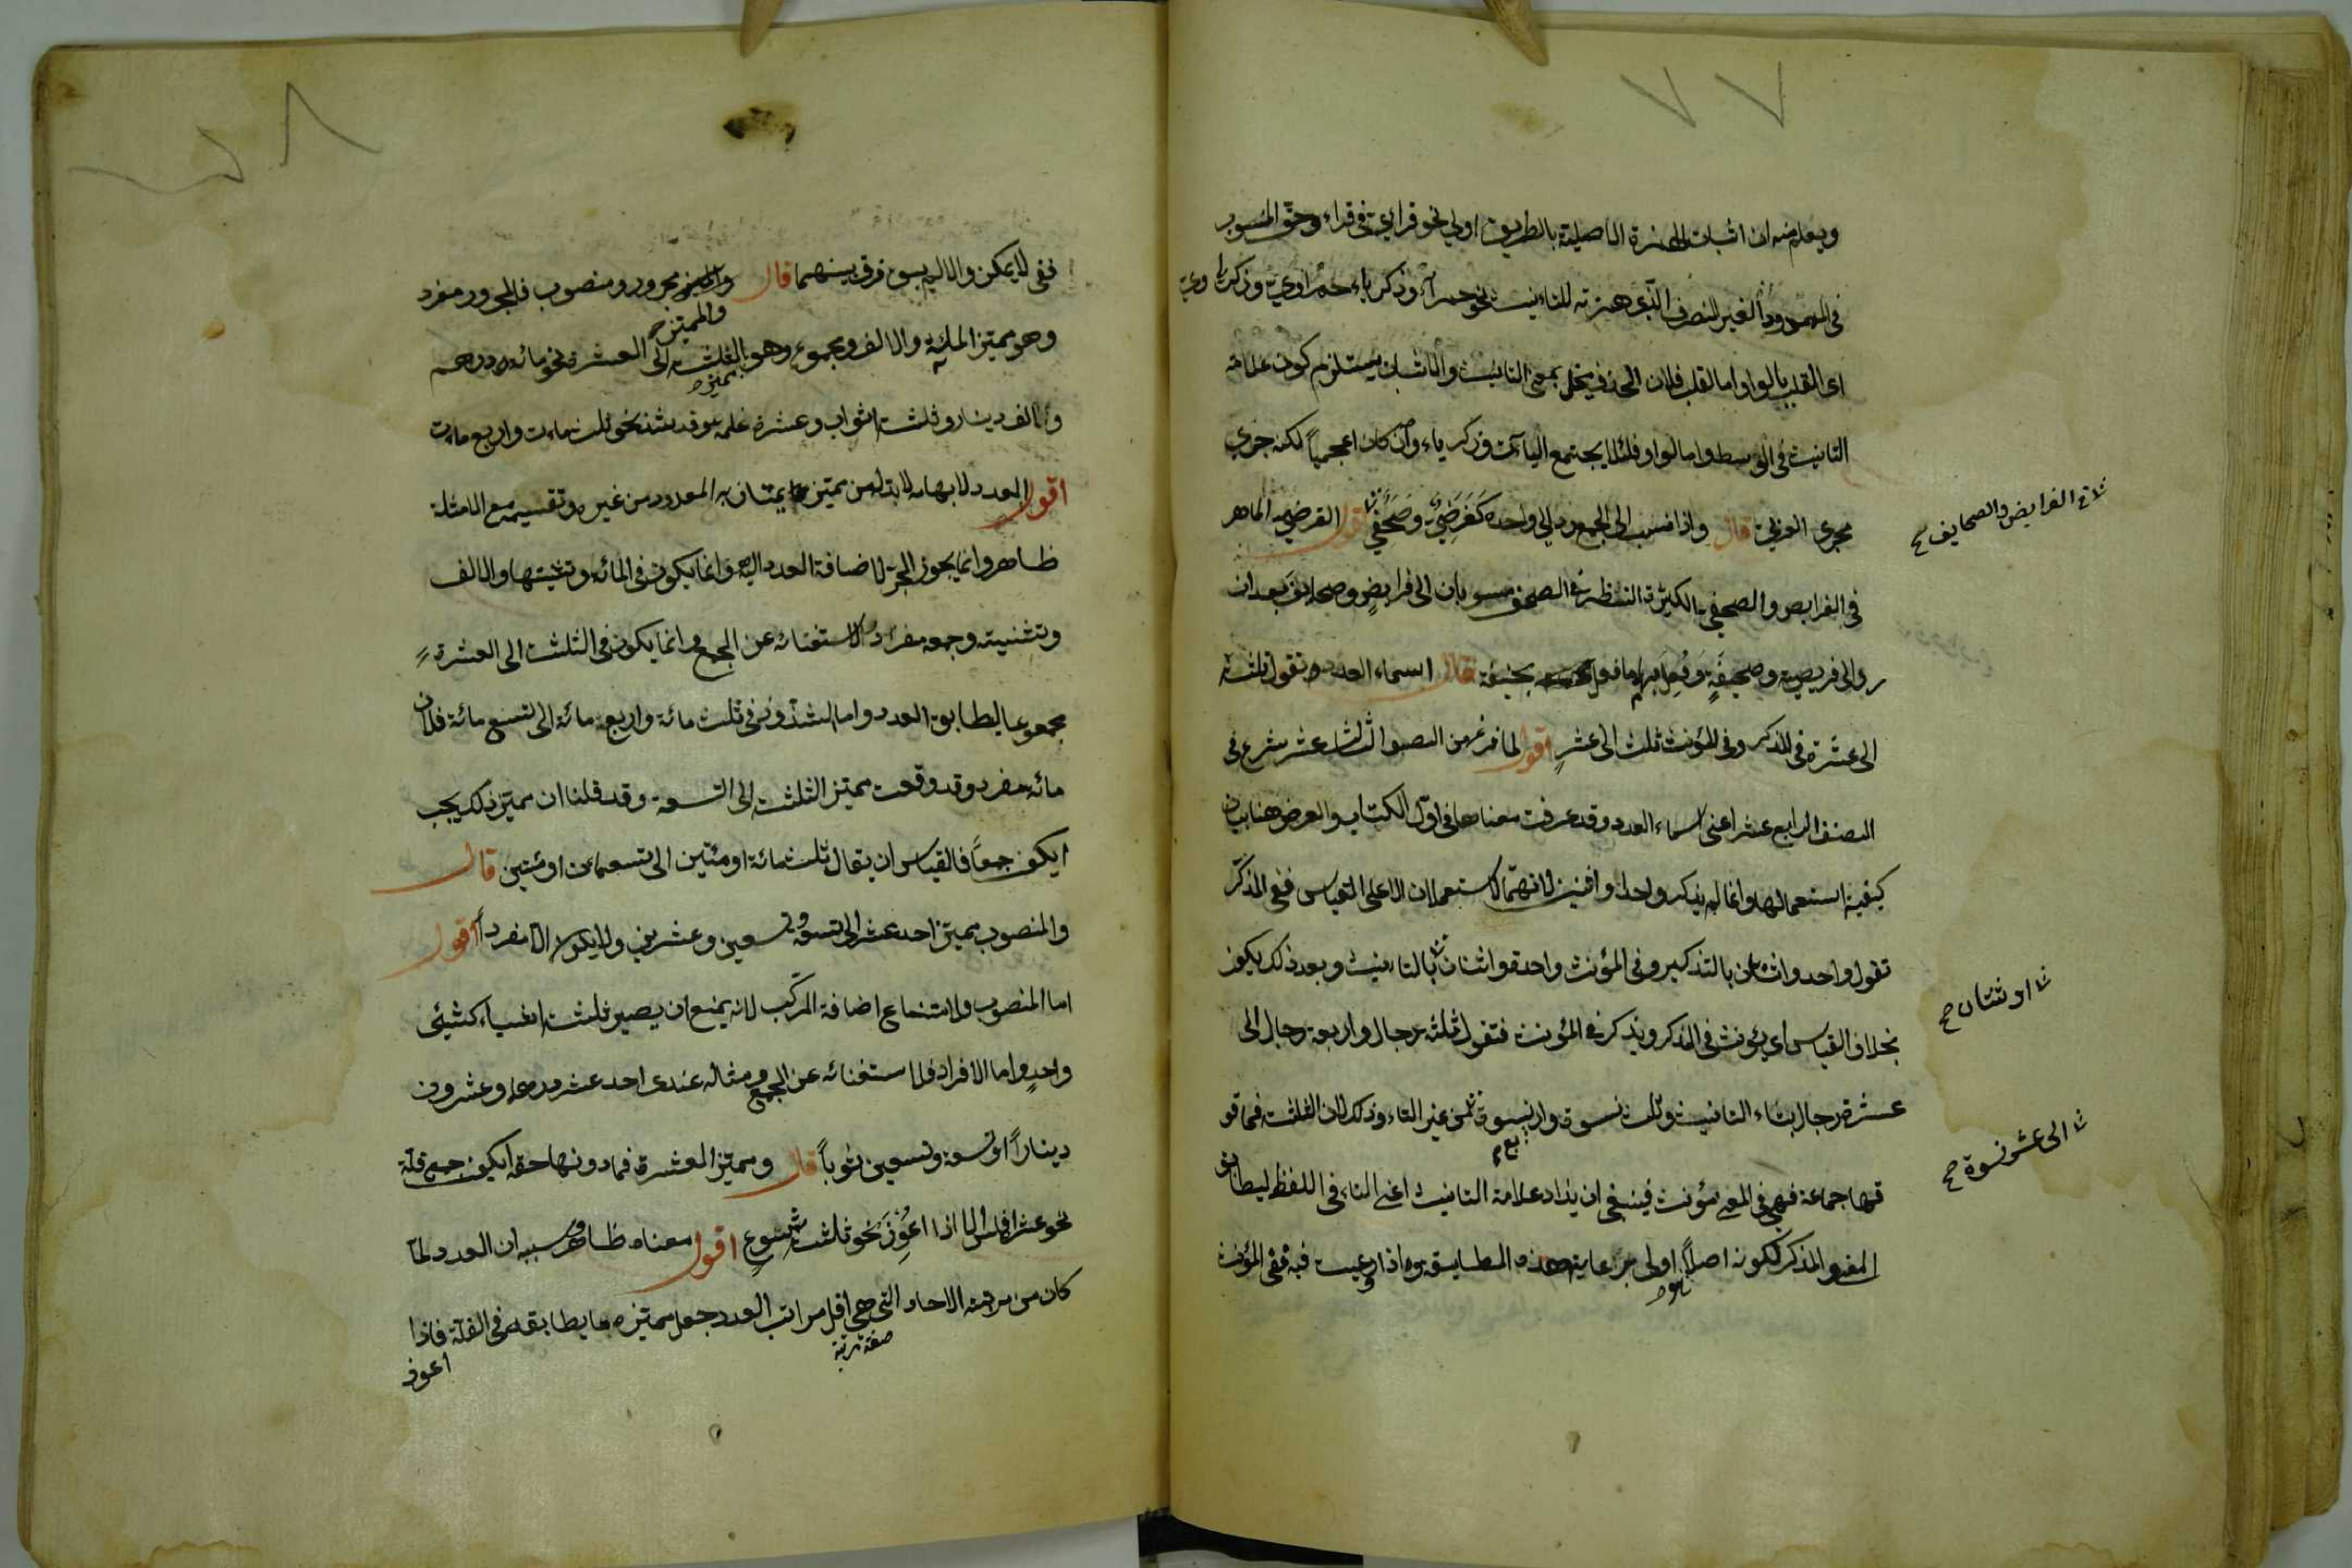 ٧٧
ويعلم منه ان اثبات الهمزة الاصلية بالطريق اولى نحو قرائي في قراء وحق المنسوب
في الممدود الغير المنصرف الذي همزته للتانيث نحو حمراء وزكرياء حمراوي وزكرياوي
اى القلب بالواو اما القلب فلان الحذف يخل بمعنى التانيث والاثبات يستلزم كون علامة
التانيث فى الوسط واما الواو فلئلا يجتمع الياآت وزكرياء وان كان اعجمياً لكنه جرى
مجرى العربى قال واذا نسب الى الجمع رد الى واحده كفرضىّ وصحفىّ اقول الفرضى الماهر
فى الفرايض والصحفى الكثير النظر فى الصحف منسوبان الى فرايض وصحايف بعد ان
رد الى فريضة وصحيفة وفعل بهما ما فعل بحنيفة قال اسماء العدد تقول ثلثة
الى عشرة فى المذكر وفى المؤنث ثلث الى عشر اقول لما فرغ من الصنف الثالث عشر شرع فى
الصنف الرابع عشر اعنى اسماء العدد وقد عرفت معناها فى اول الكتاب والغرض هنا بيان
كيفية استعمالها وانما لم يذكر واحدا واثنين لانهما لا يستعملان الا على القياس ففى المذكر
تقول واحد واثنان بالتذكير وفى المؤنث واحدة واثنتان بالتانيث وبعد ذلك يكون
بخلاف القياس اى يؤنث فى المذكر ويذكر فى المؤنث فتقول ثلثة رجال واربعة رجال الى
عشرة رجال بتاء التانيث وثلث نسوة واربع نسوة من غير التاء وذلك لان الثلثة فما فو
قها جماعة فهى فى المعنى مؤنث فينبغى ان يزاد علامة التانيث اعنى التاء فى اللفظ ليطابق
المعنى والمذكر لكونه اصلاً اولى برعاية هذه المطابقة واذا روعيت فيه ففى المؤنث
فى الفرايض والصحايف
او ثنتان
الى عشر نسوة
٧٨
ففى لا يمكن والا لم يبق فرق بينهما قال والمميز مجرور ومنصوب فالمجرور مفرد
وهو مميز المائة والالف ومجموع وهو مميز الثلثة الى العشرة نحو مائة درهم
والف دينار وثلثة اثواب وعشرة غلمة وقد شذ نحو ثلثمائة واربع مائة
اقول العدد لابهامه لا بد له من مميز يمتاز به المعدود من غيره وتقسيمه مع الامثلة
ظاهر وانما يجوز الجر لاضافة العدد اليه وانما يكون فى المائة وتثنيتها والالف
وتثنيته وجمعه مفرداً للاستغنائه عن الجمع وانما يكون فى الثلثة الى العشرة
مجموعا ليطابق العدد واما الشذوذ فى ثلث مائة واربع مائة الى تسع مائة فلان
مائة مفرد وقد وقعت مميز الثلثة الى التسعة وقد قلنا ان مميز ذلك يجب
ان يكون جمعاً فالقياس ان يقال ثلث مئات او مئين الى تسع مئات او مئين قال
والمنصوب مميز احد عشر الى تسعة وتسعين وعشرين ولا يكون الا مفرداً اقول
اما المنصوب فلامتناع اضافة المركب لانه يمنع ان يصير ثلثة اشياء كشيئ
واحد واما الافراد فلاستغنائه عن الجمع ومثاله عندى احد عشر درهما وعشرون
ديناراً او تسعة وتسعين ثوباً قال ومميز العشرة فما دونها حقه ان يكون جمع قلة
نحو عشرة افلس الا اذا اعوز نحو ثلثة شسوع اقول معناه ظاهر وسببه ان العدد لما
كان من مرتبة الاحاد التى هى اقل مراتب العدد جعل مميزه ما يطابقه فى القلة فاذا
صفة مرتبة
اعوز